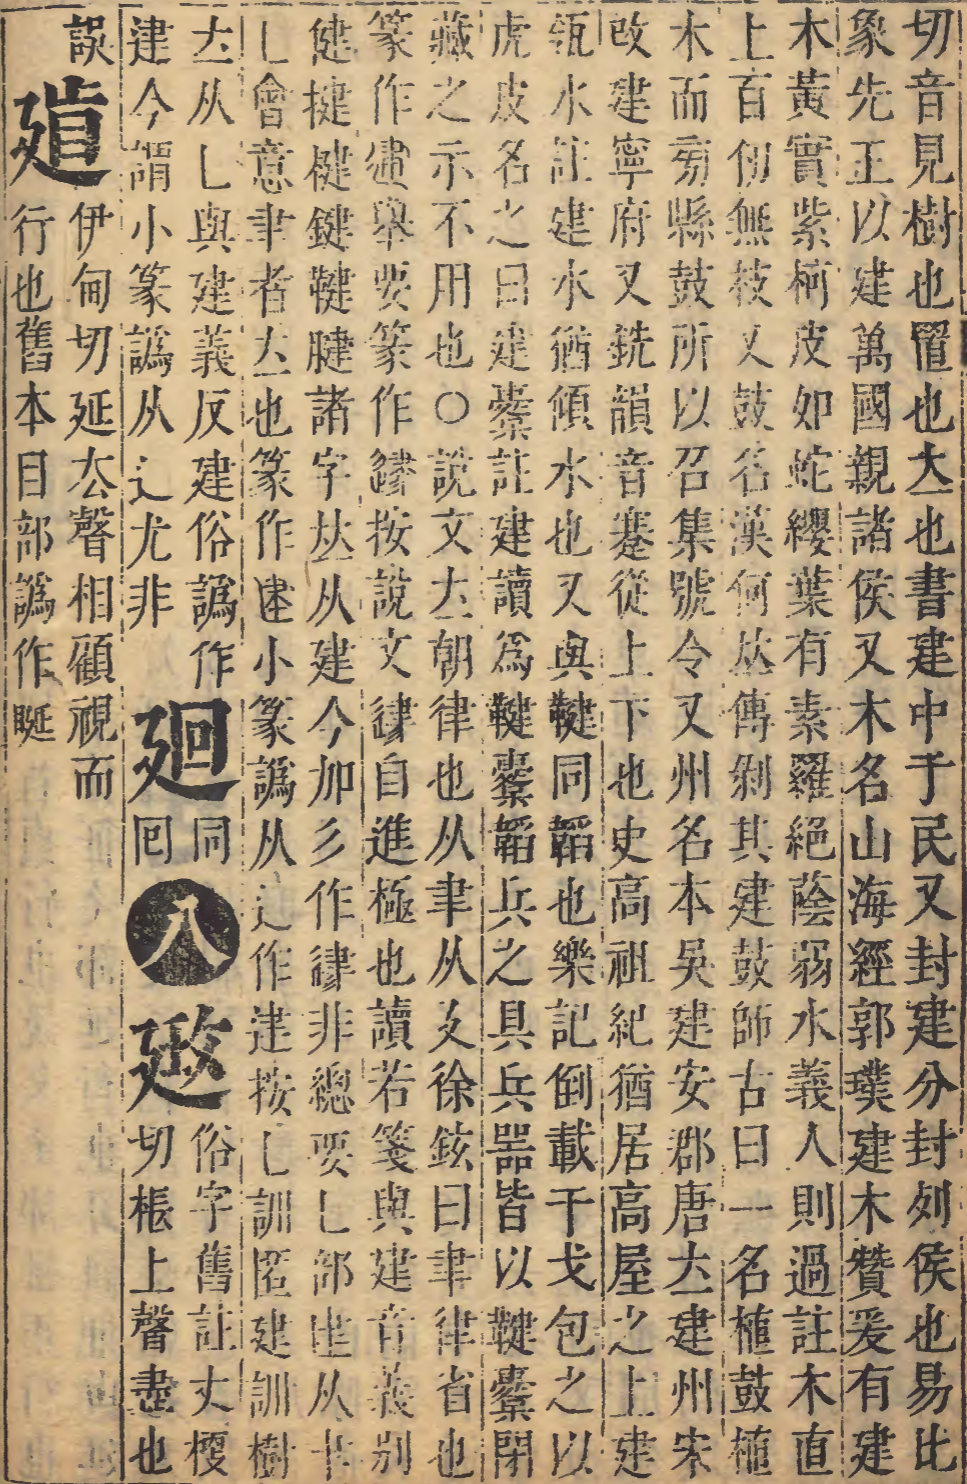 切音見樹也置也𡗗也書建中于民又封建分封列侯也易比
象先王以建萬國親諸侯又木名山海經郭璞建木贊爰有建
木黃實紫柯皮如蛇纓葉有素羅絕蔭弱水義人則過註木直
上百仞無枝又鼓名漢何㳒傳剝其建鼓師古曰一名植鼓植
木而旁縣鼓所以召集號令又州名本吳建安郡唐𡗗建州宋
改建寧府又銑韻音蹇從上下也史高祖紀猶居高屋之上建
瓴水註建水猶傾水也又與鞬同韜也樂記倒載干戈包之以
虎皮名之曰建櫜註建讀爲鞬櫜韜兵之具兵器皆以鞬櫜閉
藏之示不用也○說文𡗗朝律也从聿从廴徐鉉曰聿律省也
篆作 舉要篆作 按說文 自進極也讀若箋與建音義別
健揵楗鍵鞬腱諸字 从建今加彡作 非總要乚部 从
乚會意聿者𡗗也篆作 小篆譌从辶作 按乚訓匿建訓樹
𡗗从乚與建義反建俗譌作
建今謂小篆譌从辶尤非
廻
同
囘
八
俗字舊註丈棖
切棖上聲盡也
誤
伊甸切延𡗗聲相顧視而
行也舊本目部譌作䀽